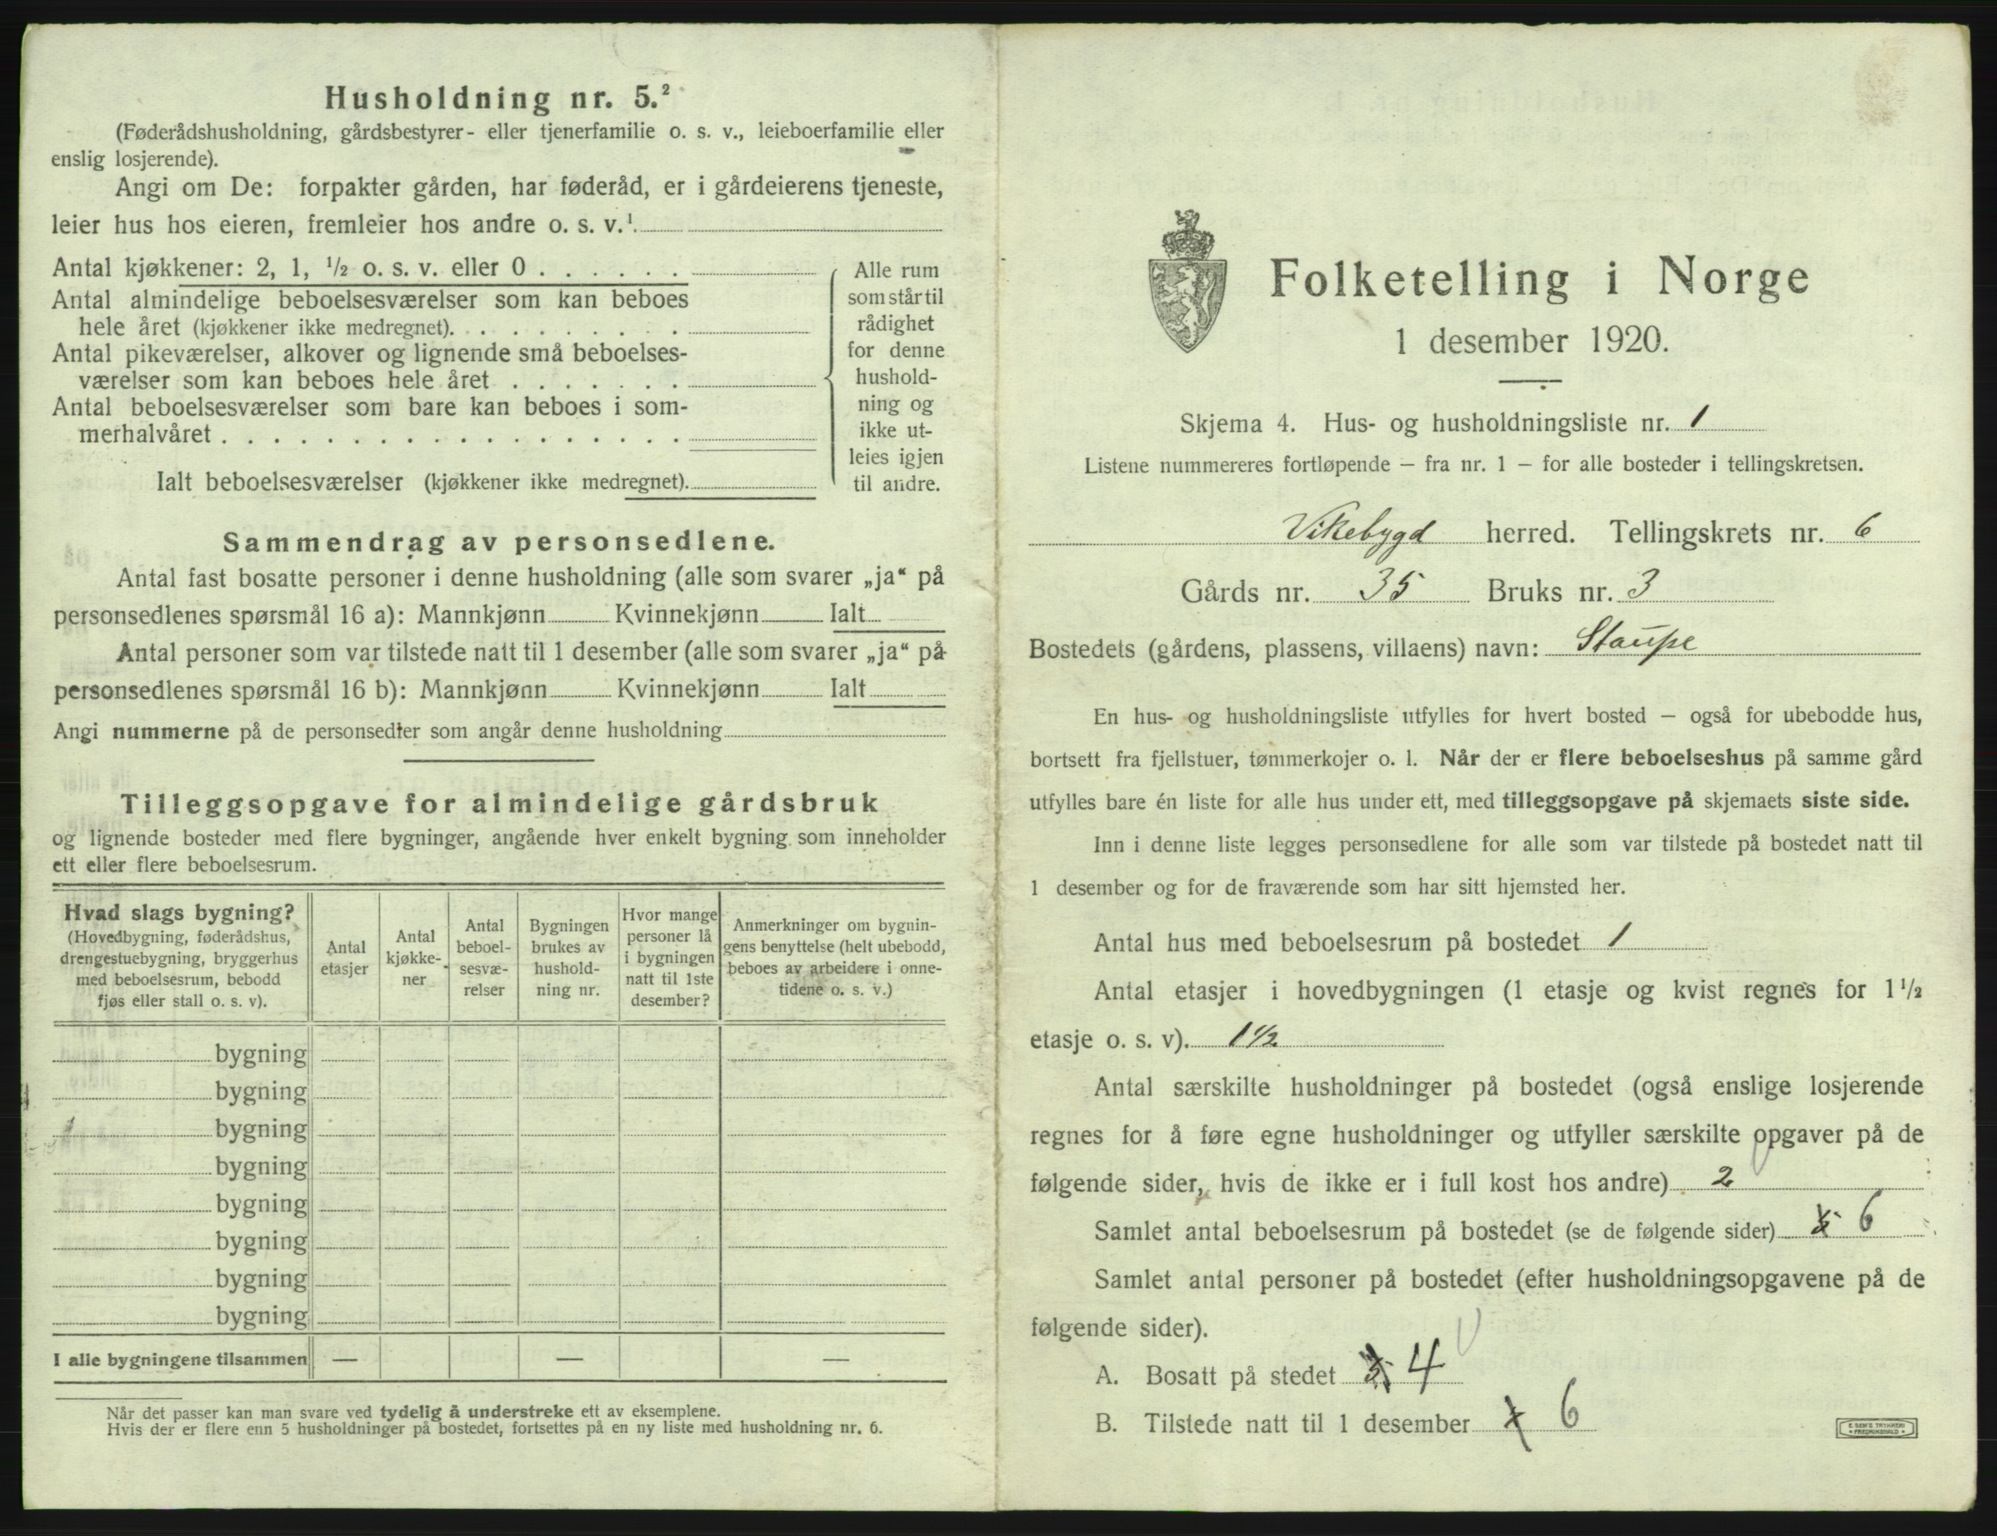 Husholdning nr. 5.²
(Føderådshusholdning, gårdsbestyrer- eller tjenerfamilie o. s. v., leieboerfamilie eller
enslig losjerende).
Angi om De: forpakter gården, har føderåd, er i gårdeierens tjeneste,
leier hus hos eieren, fremleier hos andre o. s. v.¹
Antal kjøkkener: 2, 1, ½ o. s. v. eller 0 . . . . . .
Antal almindelige beboelsesværelser som kan beboes
hele året (kjøkkener ikke medregnet). . . . . . . . .
Antal pikeværelser, alkover og lignende små beboelses-
værelser som kan beboes hele året . . . . . . .
Antal beboelsesværelser som bare kan beboes i som-
merhalvåret . . . . . . . . . . . . . . . . . .
Ialt beboelsesværelser (kjøkkener ikke medregnet).
Alle rum
som står til
rådighet
for denne
hushold-
ning og
ikke ut-
leies igjen
til andre.
Sammendrag av personsedlene.
Antal fast bosatte personer i denne husholdning (alle som svarer „ja“ på
personsedlenes spørsmål 16 a): Mannkjønn Kvinnekjønn Ialt
Antal personer som var tilstede natt til 1 desember (alle som svarer „ja“ på
personsedlenes spørsmål 16 b): Mannkjønn Kvinnekjønn Ialt
Angi nummerne på de personsedler som angår denne husholdning
Tilleggsopgave for almindelige gårdsbruk
og lignende bosteder med flere bygninger, angående hver enkelt bygning som inneholder
ett eller flere beboelsesrum.
Hvad slags bygning?
(Hovedbygning, føderådshus,
drengestuebygning, bryggerhus
med beboelsesrum, bebodd
fjøs eller stall o. s. v).
Antal
etasjer
Antal
kjøkke-
ner
Antal
beboel-
sesvæ-
relser
Bygningen
brukes av
hushold-
ning nr.
Hvor mange
personer lå
i bygningen
natt til 1ste
desember?
Anmerkninger om bygnin-
gens benyttelse (helt ubebodd,
beboes av arbeidere i onne-
tidene o. s. v.)
bygning
bygning
bygning
bygning
bygning
bygning
bygning
bygning
I alle bygningene tilsammen — — —
Når det passer kan man svare ved tydelig å understreke ett av eksemplene.
Hvis der er flere enn 5 husholdninger på bostedet, fortsettes på en ny liste med husholdning nr. 6.
Folketelling i Norge
1 desember 1920.
Skjema 4. Hus- og husholdningsliste nr. 1
Listene nummereres fortløpende – fra nr. 1 – for alle bosteder i tellingskretsen.
Vikebygd herred. Tellingskrets nr. 6
Gårds nr. 35 Bruks nr. 3
Bostedets (gårdens, plassens, villaens) navn: Staupe
En hus- og husholdningsliste utfylles for hvert bosted – også for ubebodde hus,
bortsett fra fjellstuer, tømmerkojer o. l. Når der er flere beboelseshus på samme gård
utfylles bare én liste for alle hus under ett, med tilleggsopgave på skjemaets siste side.
Inn i denne liste legges personsedlene for alle som var tilstede på bostedet natt til
1 desember og for de fraværende som har sitt hjemsted her.
Antal hus med beboelsesrum på bostedet 1
Antal etasjer i hovedbygningen (1 etasje og kvist regnes for 1½
etasje o. s. v). 1½
Antal særskilte husholdninger på bostedet (også enslige losjerende
regnes for å føre egne husholdninger og utfyller særskilte opgaver på de
følgende sider, hvis de ikke er i full kost hos andre) 2
Samlet antal beboelsesrum på bostedet (se de følgende sider) 6
Samlet antal personer på bostedet (efter husholdningsopgavene på de
følgende sider).
A. Bosatt på stedet 4
B. Tilstede natt til 1 desember 6